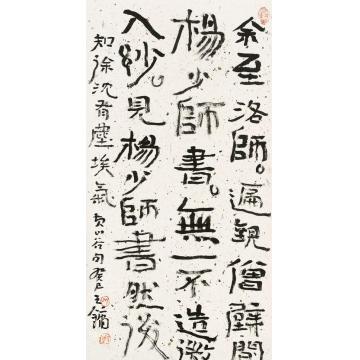 余至洛師。遍觀僧壁間
楊少師書。無一不造微
入玅。見楊少師書然後
知徐沈有塵埃氣 黃山谷句癸巳王鏞